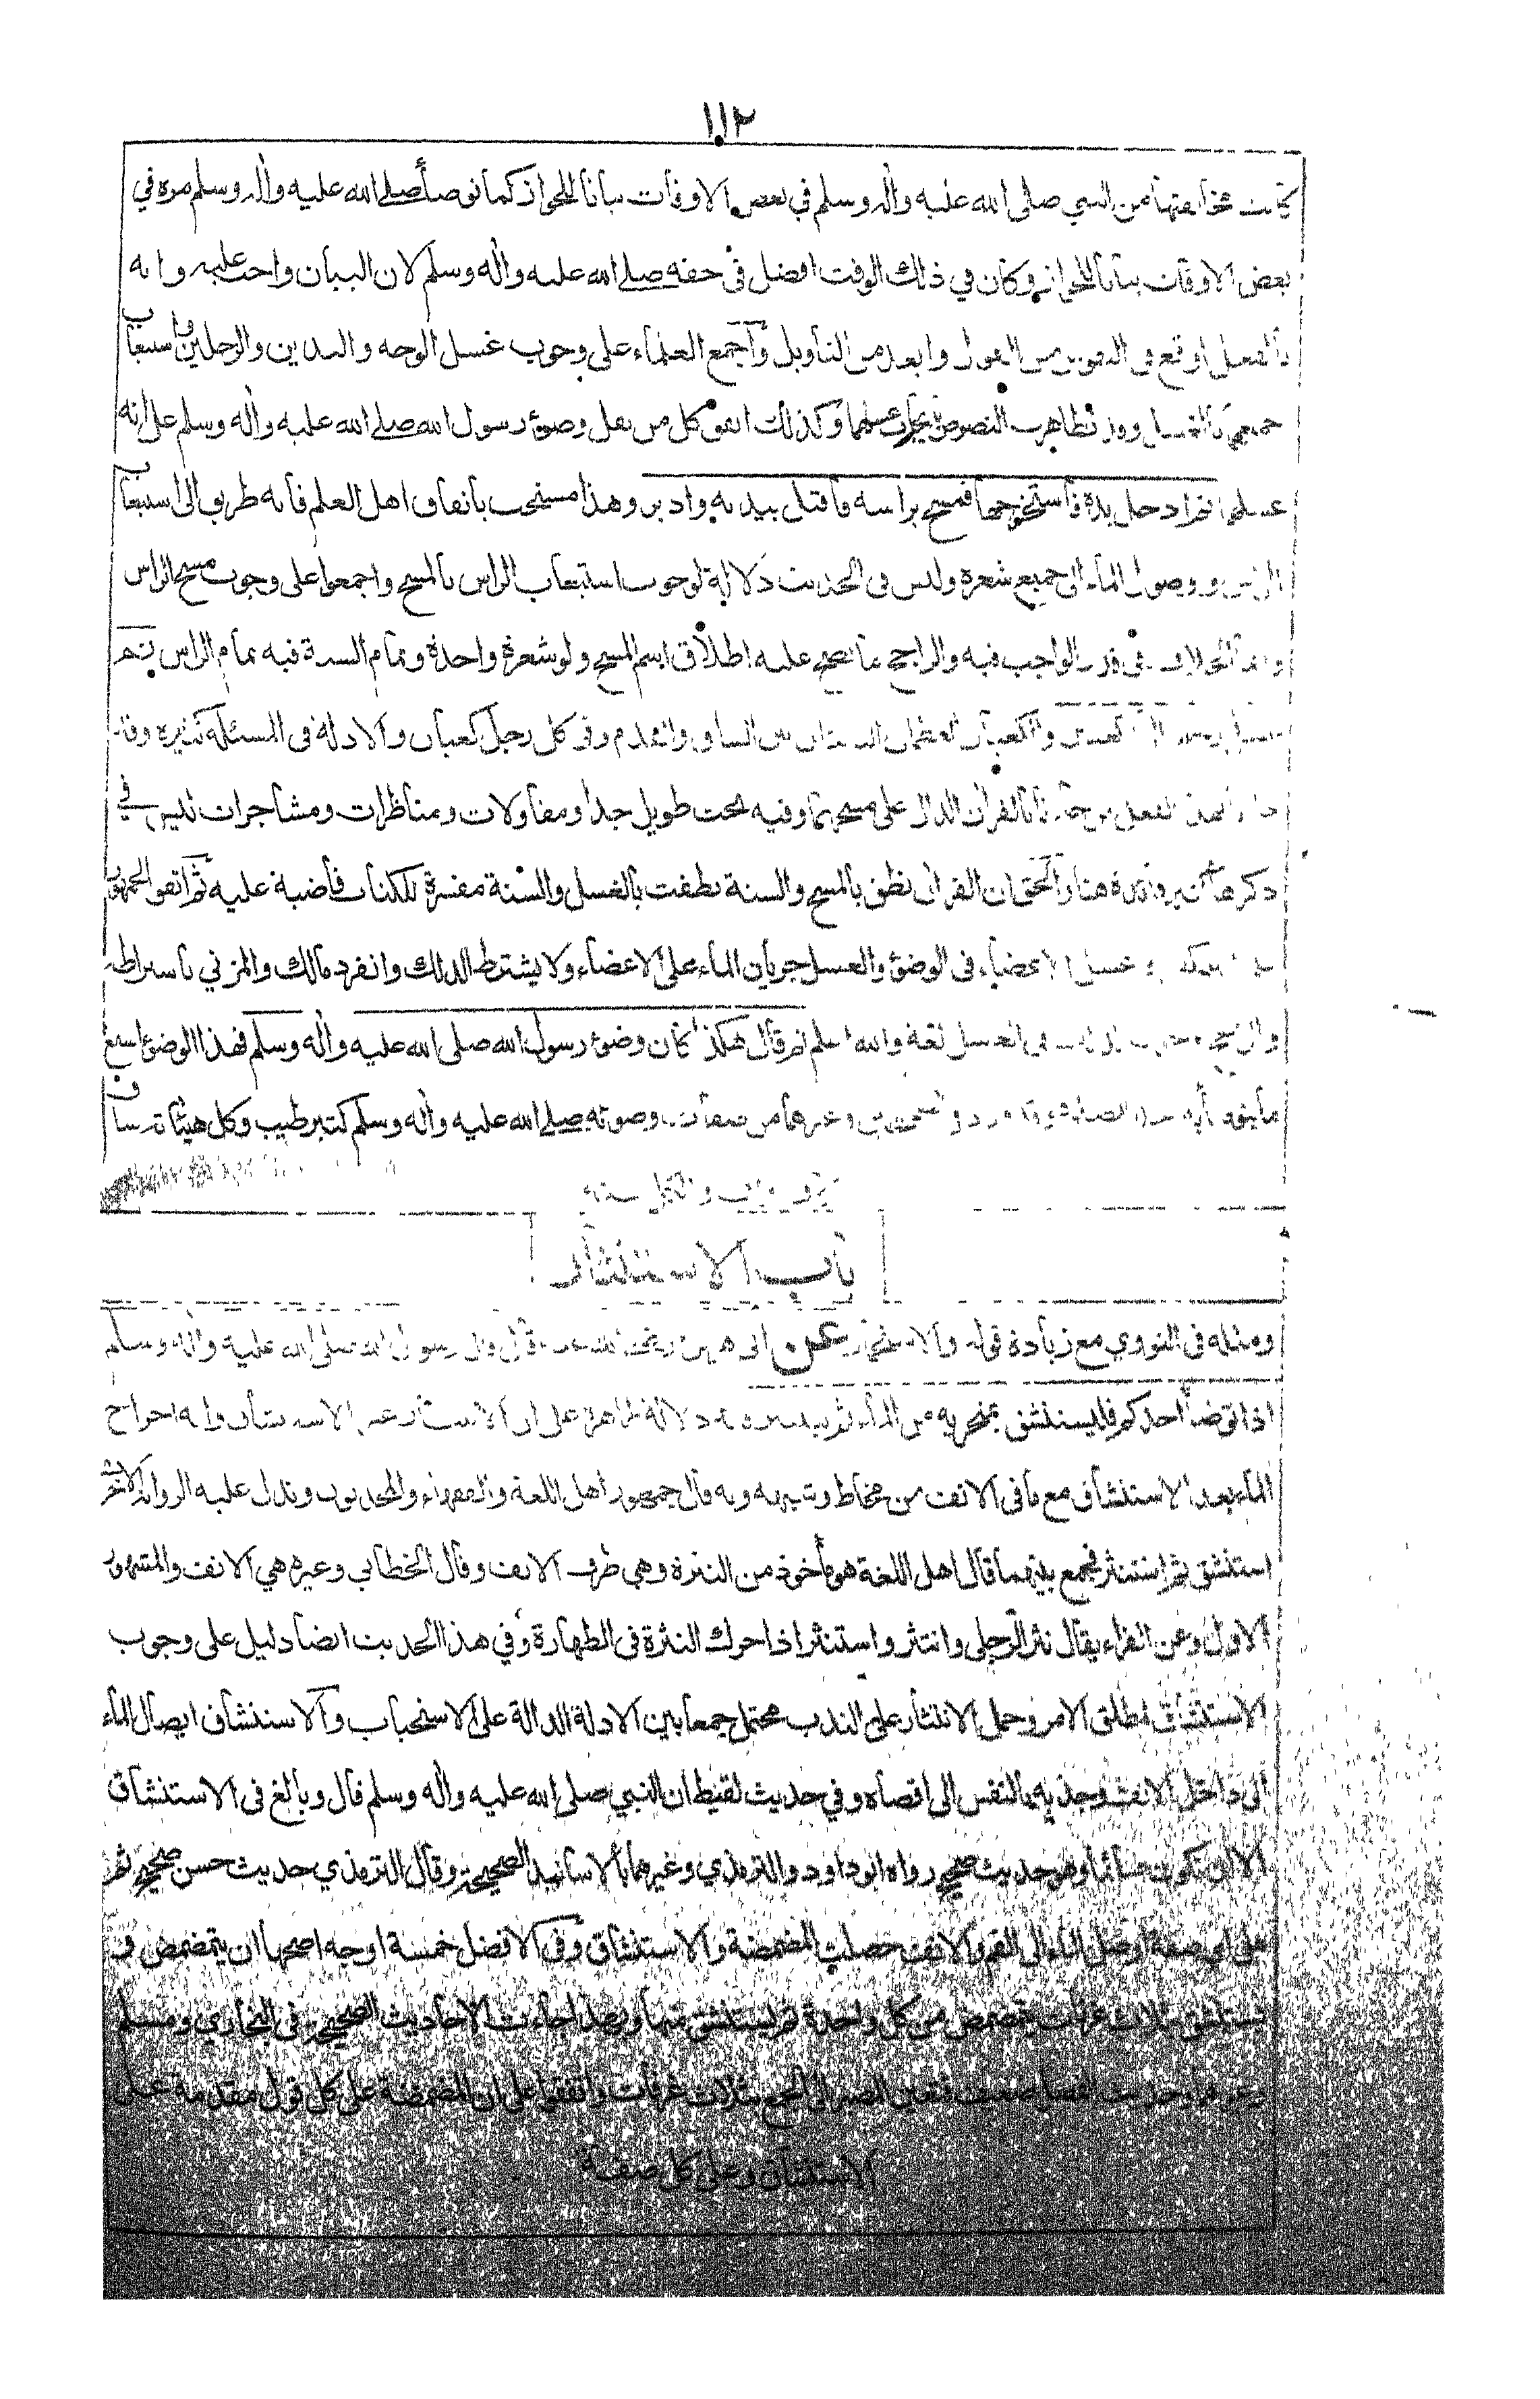 ١١٢
كانت مخالفتها من النبي صلى الله عليه واله وسلم في بعض الاوقات بيانا للجواز كما توضأ صلے الله عليه واله وسلم مرة في
بعض الاوقات بيانا للجواز وكان في ذلك الوقت افضل في حقه صلے الله عليه واله وسلم لان البيان واجب عليه وانه
بالفعل اوقع فى النفوس من القول وابعد من التاويل واجمع العلماء على وجوب غسل الوجه واليدين والرجلين واستيعاب
جميعها بالغسل وقد تظاهرت النصوص بايجاب غسلهما وكذلك اتفق كل من نقل وضوء رسول الله صلے الله عليه واله وسلم على انه
غسلهما ثم ادخل يده فاستخرجها فمسح براسه فاقبل بيديه وادبر وهذا مستحب باتفاق اهل العلم فانه طريق الى استيعاب
الراس ووصول الماء الى جميع شعره وليس في الحديث دلالة لوجوب استيعاب الراس بالمسح واجمعوا على وجوب مسح الراس
في قدر الواجب فيه والراجح ما يصح عليه اطلاق اسم المسح ولو شعرة واحدة وتمام السنة فيه تمام الراس ثم
والكعبان العظمان بين الساق والقدم وفى كل رجل كعبان والادلة فى المسئلة كثيرة وقد
بالقران الدال على مسحهما وفيه بحث طويل جدا ومقاولات ومناظرات ومشاجرات ليس في
ذكرها كثير فائدة هنا والحق ان القران نطق بالمسح والسنة نطقت بالغسل والسنة مفسرة للكتاب قاضية عليه ثم اتفق الجمهور
غسل الاعضاء فى الوضوء والغسل جريان الماء على الاعضاء ولا يشترط الدلك وانفرد مالك والمزني باشتراطه
فى الغسل لغة والله اعلم ثم قال هكذا كان وضوء رسول الله صلى الله عليه واله وسلم فهذا الوضوء اسبغ
وغيرهما من صفات وضوئه صلے الله عليه واله وسلم كثير طيب وكل هيئاته سنات
باب الاستنشاق
ومثله فى النووي مع زيادة قوله والاستجمار عن ابى هريرة رضى الله عنه قال قال رسول الله صلى الله عليه واله وسلم
اذا توضأ احدكم فليستنشق بمنخريه من الماء ثم لينتثر فيه دلالة ظاهرة على ان الاستنثار غير الاستنشاق وانه اخراج
الماء بعد الاستنشاق مع ما فى الانف من مخاط وشبهه وبه قال جمهور اهل اللغة والفقهاء والمحدثون وتدل عليه الرواية الاخرى
استنشق ثم استنثر فجمع بينهما قال اهل اللغة هو مأخوذ من النثرة وهي طرف الانف وقال الخطابي وغيره هي الانف والمشهور
الاول وعن الفراء يقال نثر الرجل وانتثر واستنثر اذا حرك النثرة فى الطهارة وفي هذا الحديث ايضا دليل على وجوب
الاستنشاق لمطلق الامر وحمل الانتثار على الندب محتمل جمعا بين الادلة الدالة على الاستحباب والاستنشاق ايصال الماء
الى داخل الانف وجذبه بالنفس الى اقصاه وفي حديث لقيط ان النبي صلى الله عليه واله وسلم قال وبالغ فى الاستنشاق
الا ان تكون صائما وهو حديث صحيح رواه ابو داود والترمذي وغيرهما بالاسانيد الصحيحة وقال الترمذي حديث حسن صحيح ثم
على اي صفة اوصل الماء الى الفم والانف حصلت المضمضة والاستنشاق وفى الافضل خمسة اوجه اصحها ان يتمضمض و
يستنشق بثلاث غرفات يتمضمض من كل واحدة ثم يستنشق منها وبهذا جاءت الاحاديث الصحيحة فى البخاري ومسلم
وغيرهما وحديث الفصل ضعيف فتعين المصير الى الجمع بثلاث غرفات واتفقوا على ان المضمضة على كل قول مقدمة على
الاستنشاق وعلى كل صفة